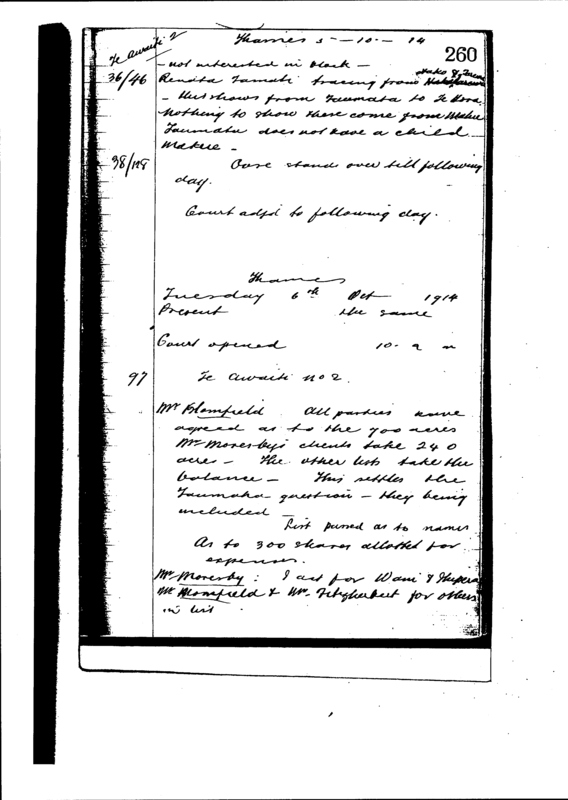 Thames 5-10-14
260
Te Awaiti 2
- not interested in block -
36/46 Rendita Tamati tracing from Hako &
- this shows from Taumata to Te Hora.
Nothing to show these come from Maku
Taumata does not have a child
Makue -
38/128 Case stands over till following
day.
Court adjd to following day.
Thames
Tuesday 6th Oct 1914
Present the same
Court opened 10. a m
97 Te Awaiti no 2.
Mr Blomfield All parties have
agreed as to the 700 acres
Mr Moresby's clients take 240
acre - The other lists take the
balance - This settles the
Taumata question - they being
included -
List passed as to names
As to 300 shares allotted for
expenses.
Mr Moresby: I act for Wani &
Mr Blomfield & Mr. Fitzherbert for others
in list